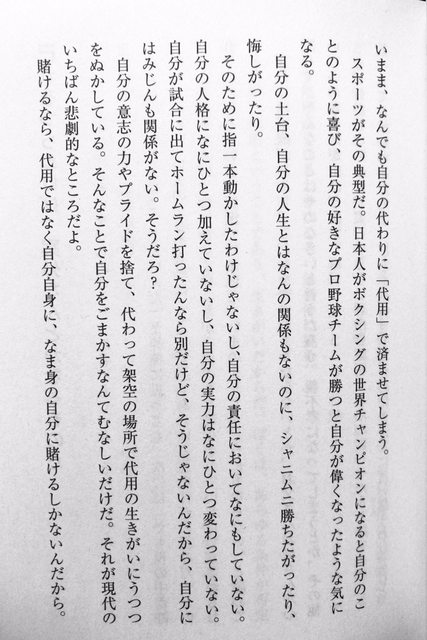 いまま、なんでも自分の代わりに「代用」で済ませてしまう。
スポーツがその典型だ。日本人がボクシングの世界チャンピオンになると自分のこ
とのように喜び、自分の好きなプロ野球チームが勝つと自分が偉くなったような気に
なる。
自分の土台、自分の人生とはなんの関係もないのに、シャニムニ勝ちたがったり、
悔しがったり。
そのために指一本動かしたわけじゃないし、自分の責任においてなにもしていない。
自分の人格になにひとつ加えていないし、自分の実力はなにひとつ変わっていない。
自分が試合に出てホームラン打ったんなら別だけど、そうじゃないんだから、自分に
はみじんも関係がない。そうだろ?
自分の意志の力やプライドを捨て、代わって架空の場所で代用の生きがいにうつつ
をぬかしている。そんなことで自分をごまかすなんてむなしいだけだ。それが現代の
いちばん悲劇的なところだよ。
賭けるなら、代用ではなく自分自身に、なま身の自分に賭けるしかないんだから。